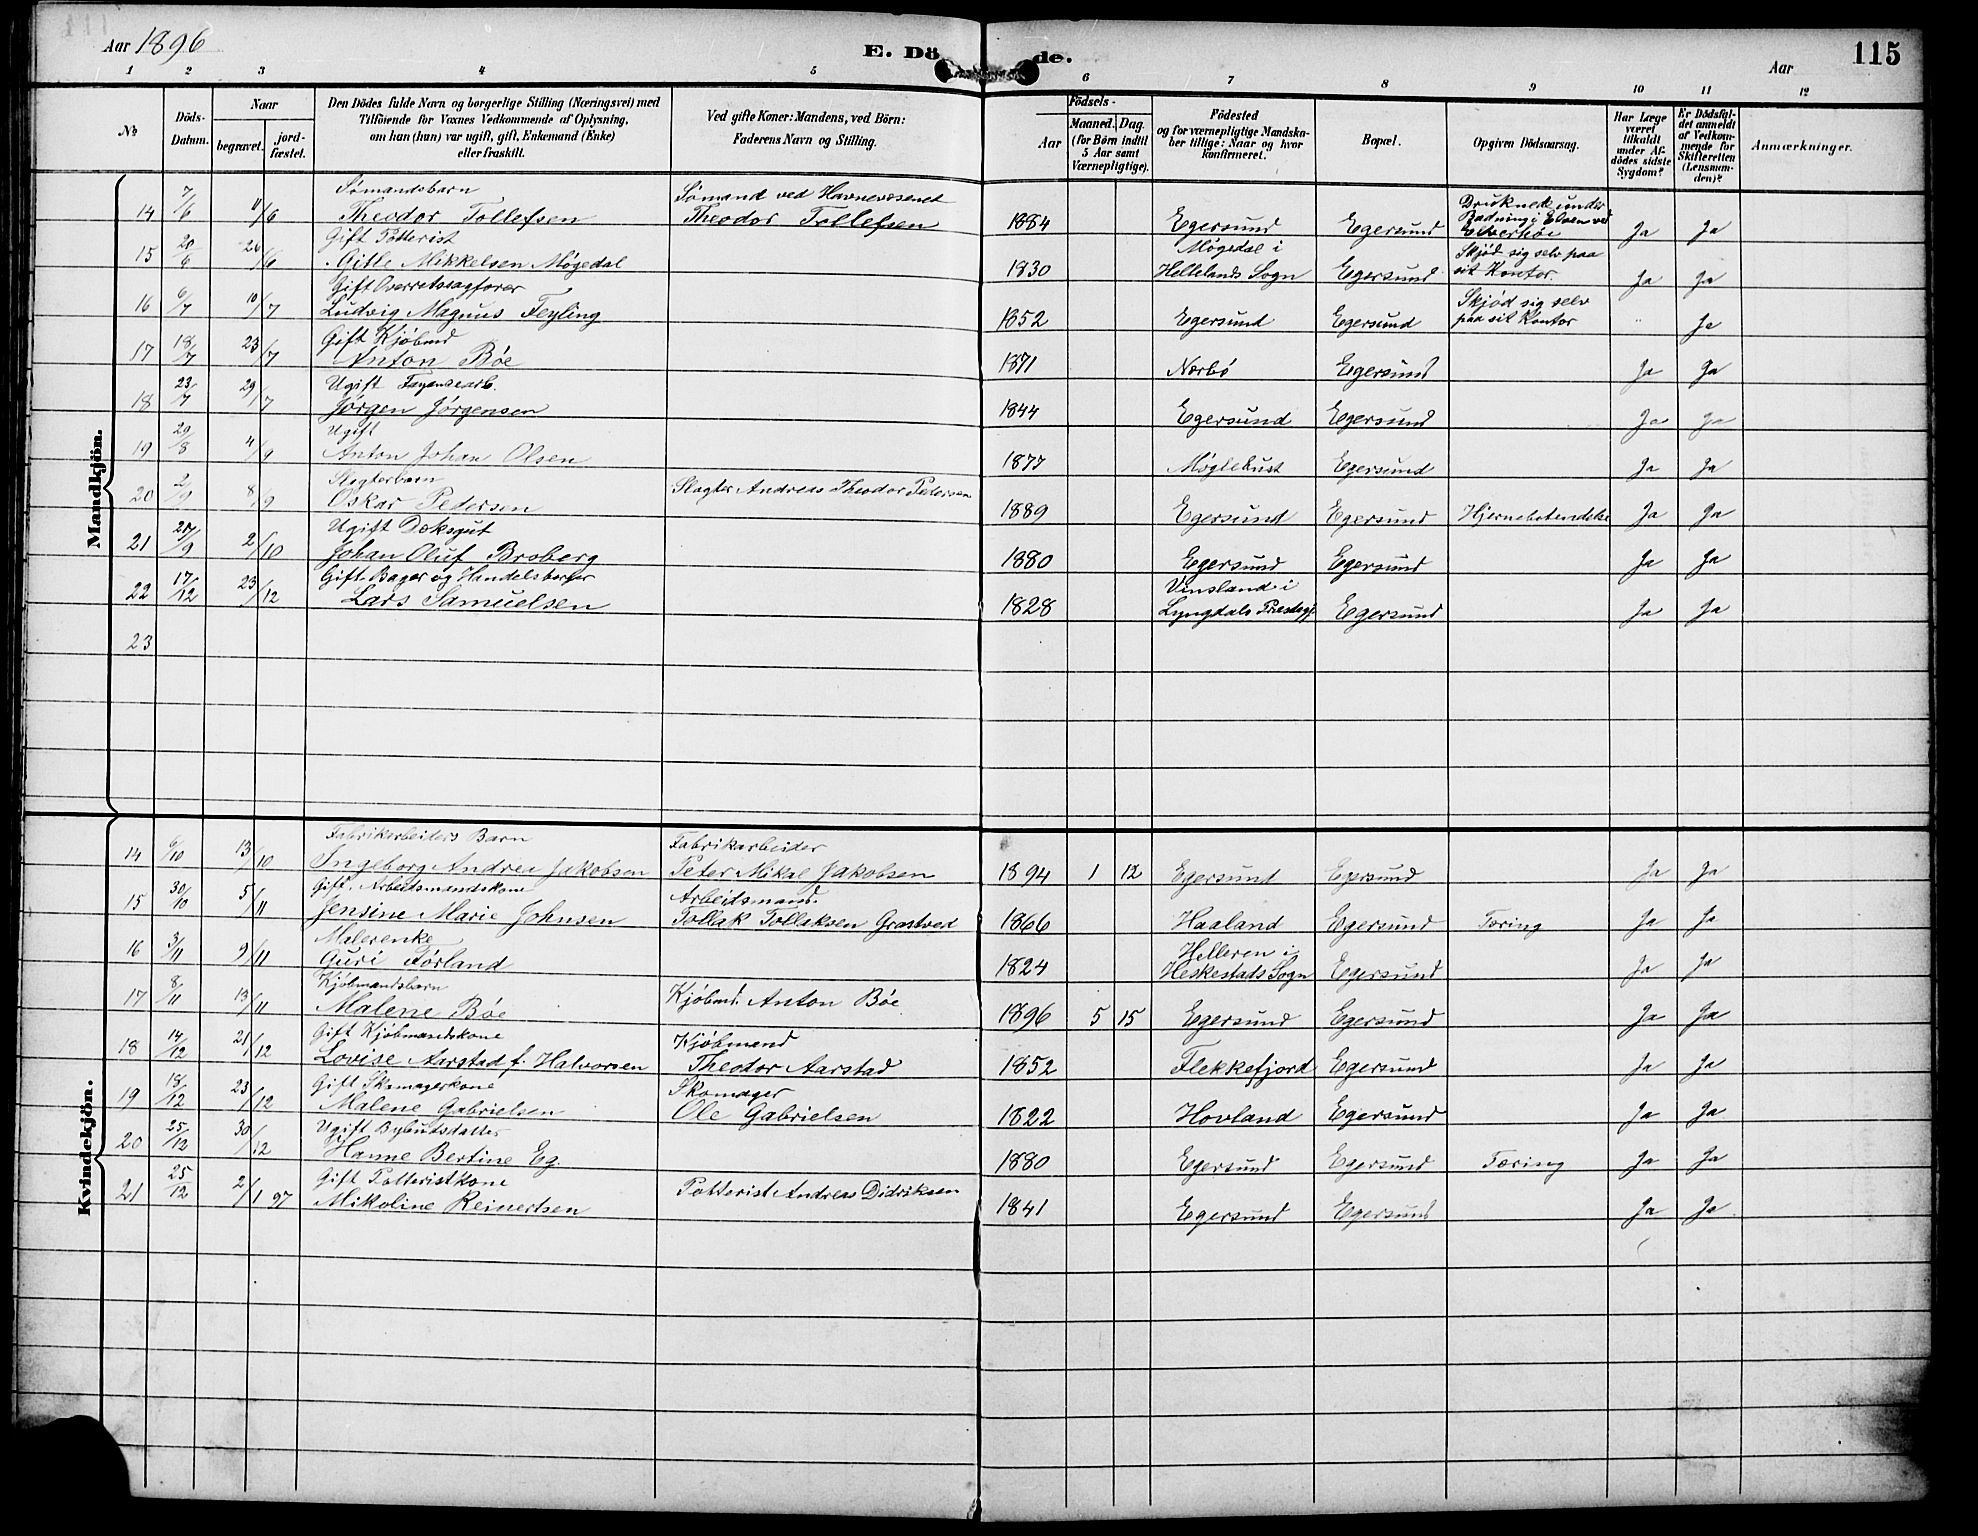 Aar 1896
E. Dö de.
Aar
115
1 2 3 4 5 6 7 8 9 10 11 12
No
Döds-Datum.
Naar
begravet.
jord-fæstet.
Den Dödes fulde Navn og borgerlige Stilling (Næringsvei) med
Tilföiende for Voxnes Vedkommende af Oplysning,
om han (hun) var ugift, gift, Enkemand (Enke)
eller fraskilt.
Ved gifte Koner: Mandens, ved Börn:
Faderens Navn og Stilling.
Födsels-
Aar
Maaned. Dag.
(for Börn indtil
5 Aar samt
Værnepligtige).
Födested
og for værnepligtige Mandska-
ber tillige: Naar og hvor
konfirmeret.
Bopæl.
Opgiven Dödsaarsag.
Har Læge
været
tilkaldt
under Af-
dödes sidste
Sygdom?
Er Dödsfal-
det anmeldt
af Vedkom-
mende for
Skifteretten
(Lensman-
den)?
Anmærkninger.
Mandkjön.
14 7/6 11/6 Sømandsbarn Sømand ved Havnevæsenet Druknede under
Theodor Tollefsen Theodor Tollefsen 1884 Egersund Egersund Badning i Elven ved Ja Ja
15 20/6 26/6 Gift Potterist Møgedal i Skjød sig selv paa
Gitle Mikkelsen Møgedal 1830 Hellelands Sogn Egersund sit Kontor. Ja Ja
16 6/7 10/7 Gift Overretssagfører Skjød sig selv
Ludvig Magnus Feyling 1852 Egersund Egersund paa sit Kontor " Ja
17 18/7 23/7 Gift Kjøbmd
Anton Bøe 1871 Nærbø Egersund Ja Ja
18 23/7 29/7 Ugift Fayancearb.
Jørgen Jørgensen 1844 Egersund Egersund Ja Ja
19 29/8 4/9 Ugift
Anton Johan Olsen 1877 Møglehust Egersund Ja Ja
20 2/9 8/9 Slagterbarn
Oskar Pedersen Slagter Andreas Theodor Pedersen 1889 Egersund Egersund Hjernebetendelse Ja Ja
21 27/9 2/10 Ugift Doksgut
Johan Oluf Broberg 1880 Egersund Egersund Ja Ja
22 17/12 23/12 Gift Bager og Handelsborger Vinsland i
Lars Samuelsen 1828 Lyngdals Præstegj. Egersund Ja Ja
23
Kvindekjön.
14 6/10 13/10 Fabrikarbeiders Barn Fabrikarbeider
Ingeborg Andrea Jakobsen Peter Mikal Jakobsen 1894 1 12 Egersund Egersund Ja Ja
15 30/10 5/11 Gift. Arbeidsmandskone Arbeidsmand.
Jensine Marie Johnsen Tollak Tollaksen Grastved 1866 Haaland Egersund Tæring Ja Ja
16 3/11 9/11 Malerenke Helleren i
Guri Førland 1824 Heskestads Sogn Egersund Ja Ja
17 8/11 13/11 Kjøbmandsbarn
Malene Bøe Kjøbmd. Anton Bøe 1896 5 15 Egersund Egersund Ja Ja
18 14/12 21/12 Gift Kjøbmandskone Kjøbmand
Lovise Aarstad f. Halvorsen Theodor Aarstad 1852 Flekkefjord Egersund Ja Ja
19 18/12 23/12 Gift Skomagerkone Skomager
Malene Gabrielsen Ole Gabrielsen 1822 Hovland Egersund Ja Ja
20 25/12 30/12 Ugift Bybudsdatter
Hanne Bertine Eg. 1880 Egersund Egersund Tæring Ja Ja
21 25/12 2/1 97 Gift Potteristkone
Mikoline Reinertsen Potterist Andreas Didriksen 1841 Egersund Egersund Ja Ja